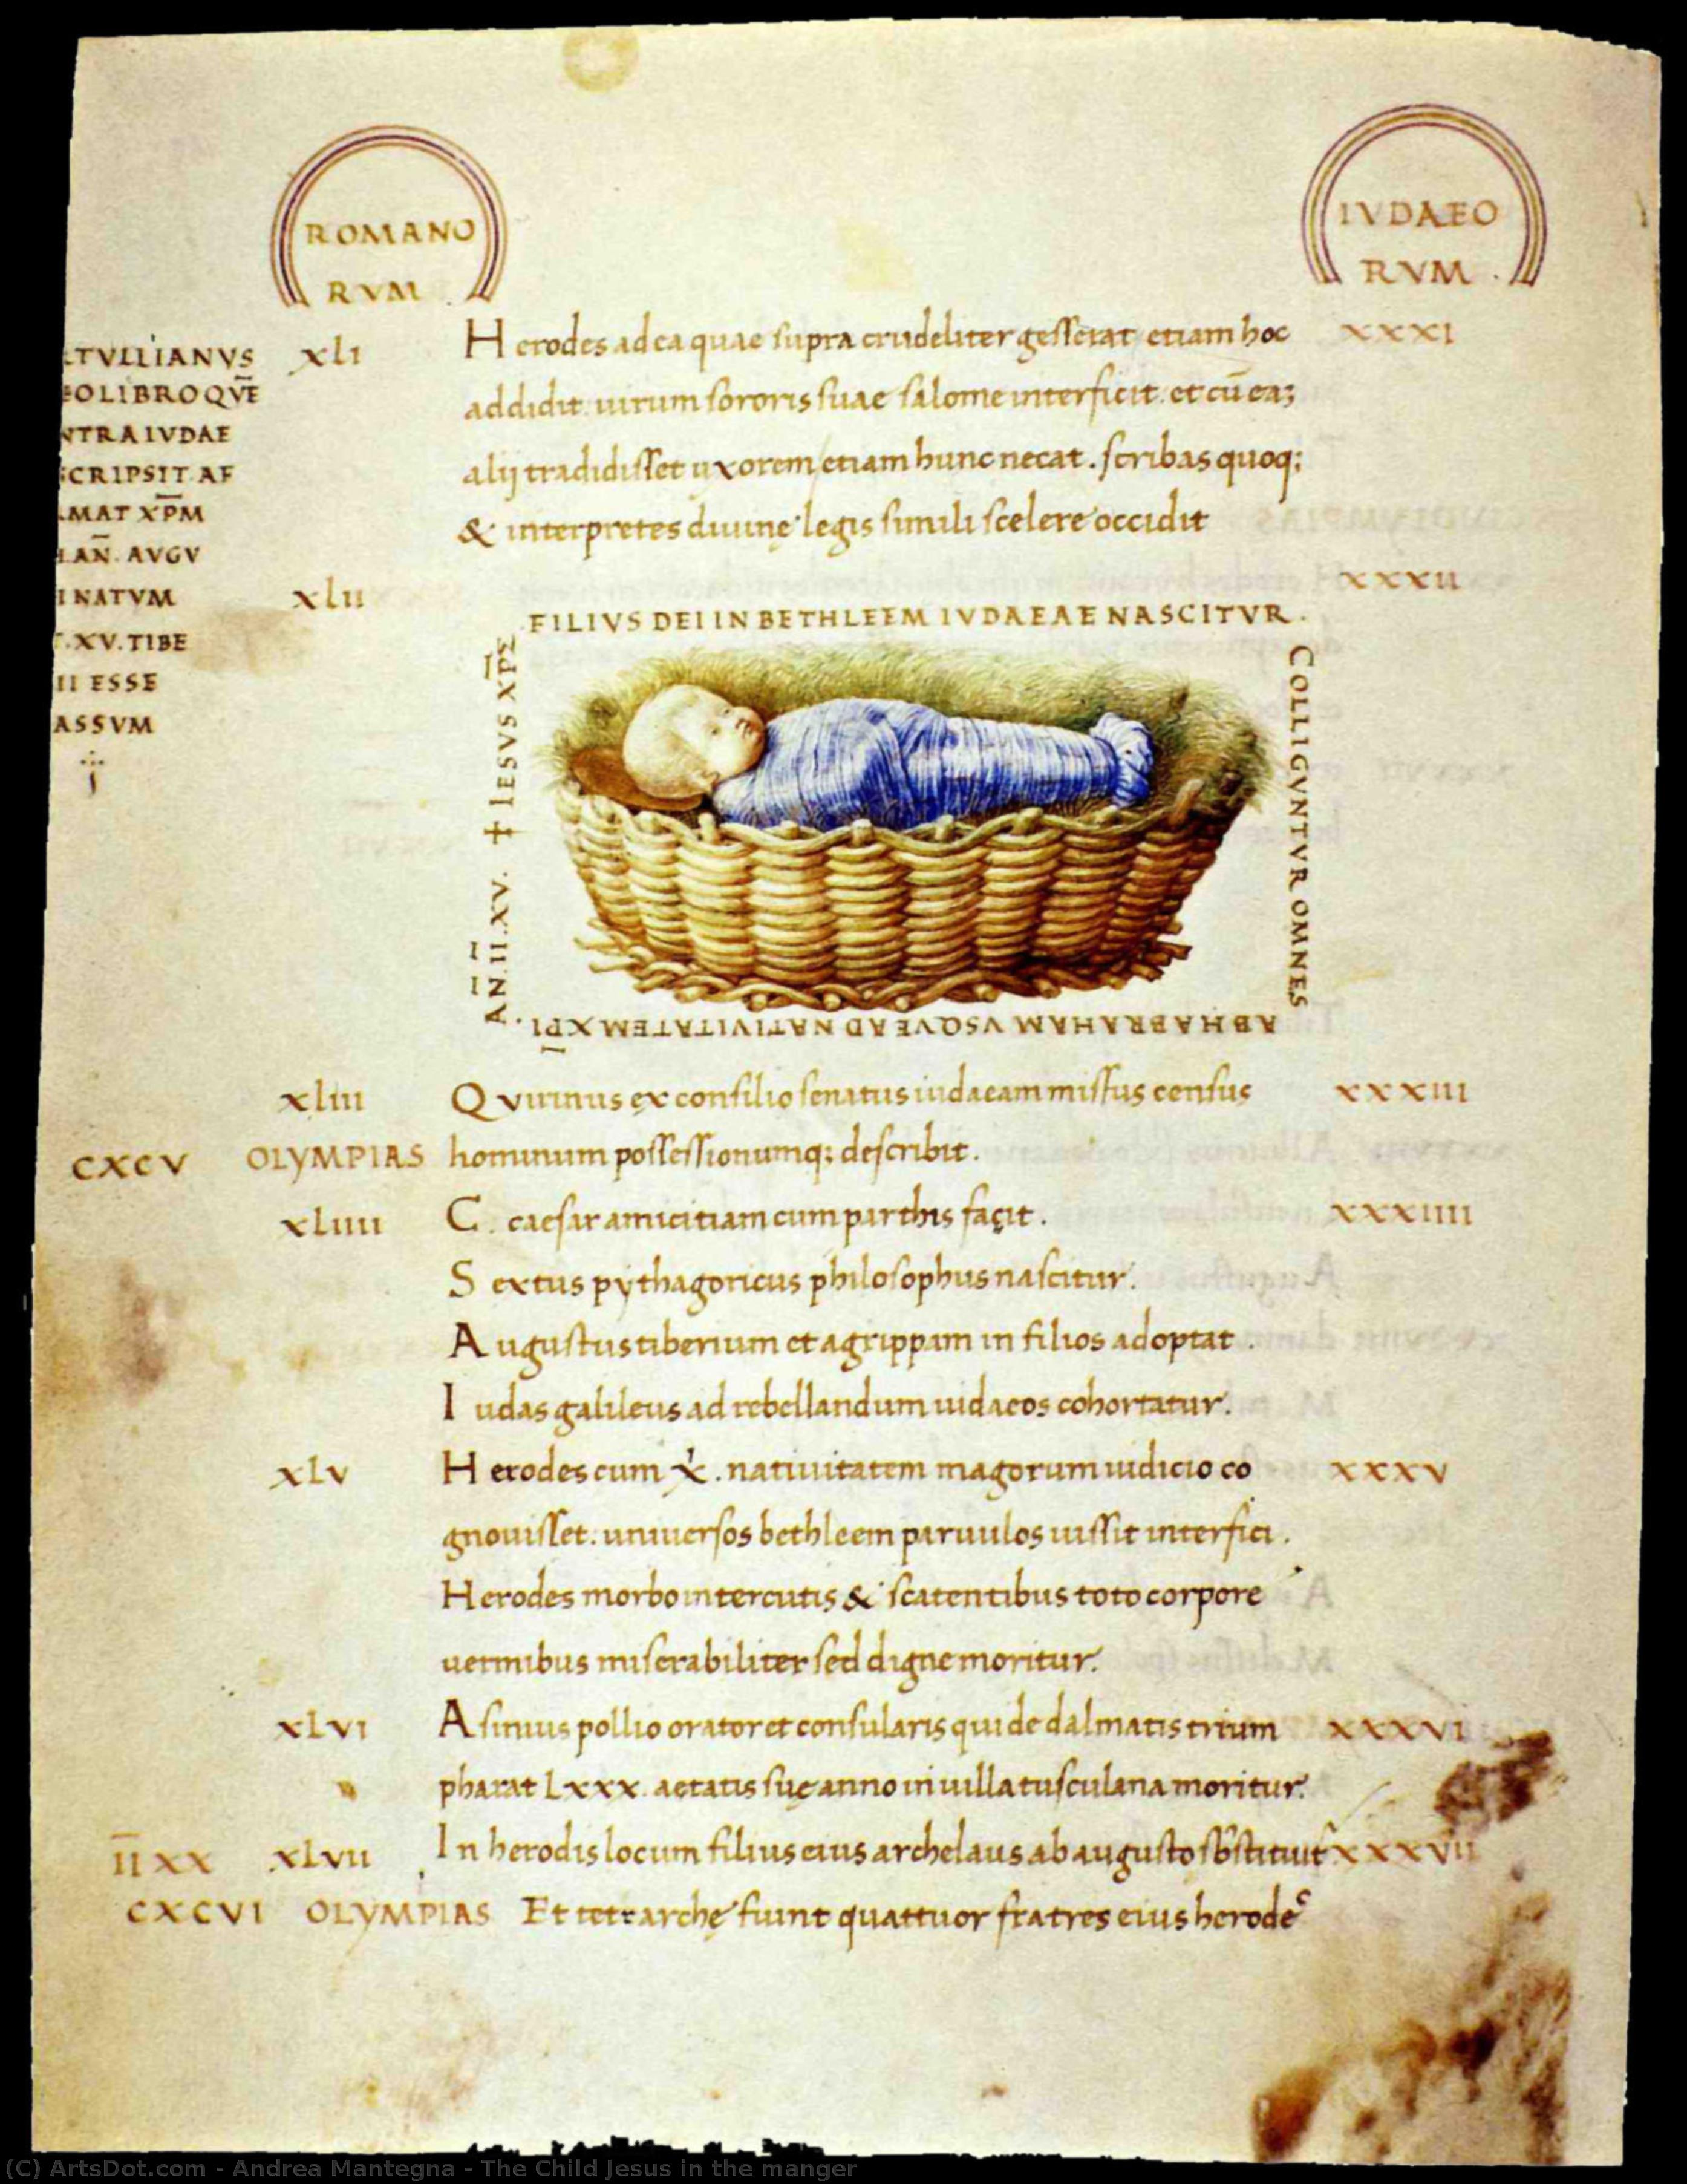 ROMANO
RVM
IVDAEO
RVM .
TVLLIANVS
OLIBROQVE̅
NTRA IVDAE
SCRIPSIT AF
MAT XP̅M
AN̅. AVGV
I NATVM
.XV. TIBE
II ESSE
ASSVM
xli Herodes ad ea quae supra crudeliter gesserat etiam hoc XXXI
addidit. uirum sororis suae salome interficit. et cū eaʒ
alij tradidisset uxorem etiam hunc necat. scribas quoq;
& interpretes diuinę legis simili scelere occidit
xlii XXXII
FILIVS DEI IN BETHLEEM IVDAEAE NASCITVR.
COLLIGVNTVR OMNES
AB HABRAHAM VSQVE AD NATIVITATEM XP̅I.
AN̅.I̅I̅.XV. † IESVS XP̅Σ
xliii Quirinus ex consilio senatus iudaeam missus census XXXIII
CXCV OLYMPIAS hominum possessionumq; describit.
xliiii C. caesar amicitiam cum parthis façit. XXXIIII
Sextus pythagoricus philosophus nascitur.
Augustus tiberium et agrippam in filios adoptat.
Iudas galileus ad rebellandum iudaeos cohortatur.
xlv Herodes cum x̓. natiuitatem magorum iudicio co XXXV
gnouisset. uniuersos bethleem paruulos iussit interfici.
Herodes morbo intercutis & scatentibus toto corpore
uermibus miserabiliter sed digne moritur.
xlvi Asinius pollio orator et consularis qui de dalmatis trium XXXVI
pharat lxxx. aetatis suę anno in uilla tusculana moritur.
I̅I̅XX xlvii In herodis locum filius eius archelaus ab augusto sb̅stituit XXXVII
CXCVI OLYMPIAS Et tetrarchę fiunt quattuor fratres eius herodes
(C) ArtsDot.com - Andrea Mantegna - The Child Jesus in the manger